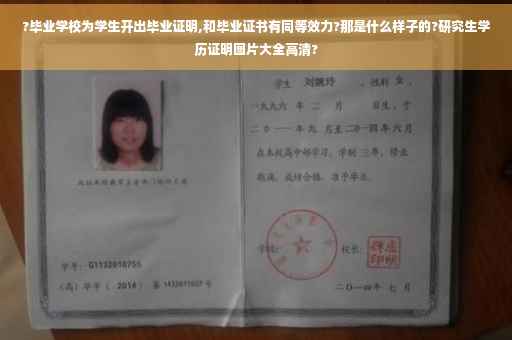 ?毕业学校为学生开出毕业证明,和毕业证书有同等效力?那是什么样子的?研究生学
历证明图片大全高清?
学生 刘婉玲 ，性别 女 ，
一九九六 年 二 月 日生，于
二〇一一年九 月至二〇一四年六月
在本校高中部学习，学制 三年，修业
期满，成绩合格，准予毕业。
学号：G1132010755
（高）毕字（ 2014 ）第 1432011027 号
学校：
校长：
二〇一四年 七 月